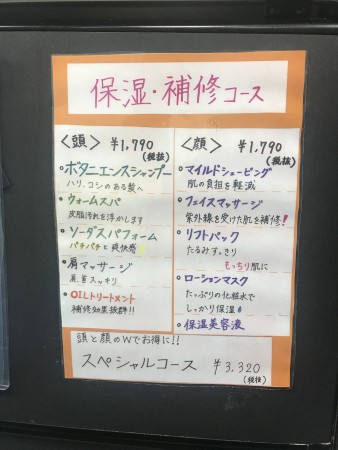 保湿・補修コース
〈頭〉 ¥1,790
(税抜)
・ボタニエンスシャンプー
ハリ、コシのある髪へ
・ウォームスパ
皮脂汚れを浮かします
・ソーダスパフォーム
パチパチと爽快感
・肩マッサージ
肩、首スッキリ
・OILトリートメント
補修効果抜群!!
〈顔〉 ¥1,790
(税抜)
・マイルドシェービング
肌の負担を軽減
・フェイスマッサージ
紫外線を受けた肌を補修!
・リフトパック
たるみすっきり
もっちり肌に
・ローションマスク
たっぷりの化粧水で
しっかり保湿
・保湿美容液
頭と顔のWでお得に!!
スペシャルコース ¥3,320
(税抜)